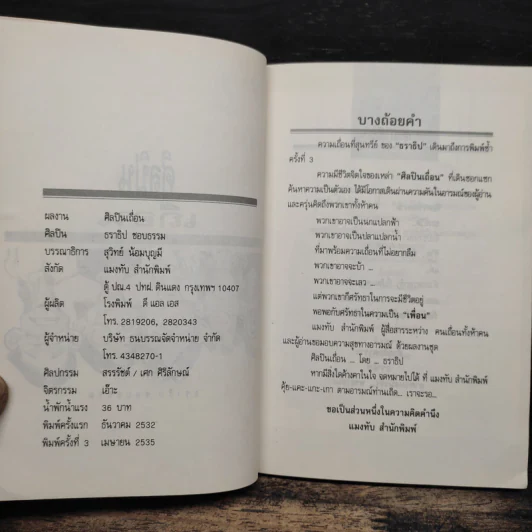 ผลงาน ศิลปินเถื่อน
ศิลปิน ธราธิป ชอบธรรม
บรรณาธิการ สุวิทย์ น้อมบุญมี
สังกัด แมงทับ สำนักพิมพ์
ตู้ ปณ.4 ปทผ. ดินแดง กรุงเทพฯ 10407
ผู้ผลิต โรงพิมพ์ ดี แอล เอส
โทร. 2819206, 2820343
ผู้จำหน่าย บริษัท ธนบรรณจัดจำหน่าย จำกัด
โทร. 4348270-1
ศิลปกรรม สรรรัชต์ / เศก ศิริลักษณ์
จิตรกรรม เอ๊าะ
น้ำพักน้ำแรง 36 บาท
พิมพ์ครั้งแรก ธันวาคม 2532
พิมพ์ครั้งที่ 3 เมษายน 2535
บางถ้อยคำ
ความเถื่อนที่สุนทรีย์ ของ "ธราธิป" เดินมาถึงการพิมพ์ซ้ำ
ครั้งที่ 3
ความมีชีวิตจิตใจของเหล่า "ศิลปินเถื่อน" ที่เดินซอกแซก
ค้นหาความเป็นตัวเอง ได้มีโอกาสเดินผ่านความคันในอารมณ์ของผู้อ่าน
และครุ่นคิดถึงพวกเขาทั้งห้าคน
พวกเขาอาจเป็นนกแปลกฟ้า
พวกเขาอาจเป็นปลาแปลกน้ำ
ที่มาพร้อมความเถื่อนที่ไม่อยากลืม
พวกเขาอาจจะบ้า ...
พวกเขาอาจจะเลว ...
แต่พวกเขาก็ศรัทธาในการจะมีชีวิตอยู่
พอพอกับศรัทธาในความเป็น "เพื่อน"
แมงทับ สำนักพิมพ์ ผู้สื่อสารระหว่าง คนเถื่อนทั้งห้าคน
และผู้อ่านขอมอบความสุขทางอารมณ์ ด้วยผลงานชุด
ศิลปินเถื่อน ... โดย ... ธราธิป
หากมีสิ่งใดค้างคาในใจ จดหมายไปได้ ที่ แมงทับ สำนักพิมพ์
คุ้ย-แคะ-แกะ-เกา ตามอารมณ์ท่านเถิด... เราจะรอ...
ขอเป็นส่วนหนึ่งในความคิดคำนึง
แมงทับ สำนักพิมพ์